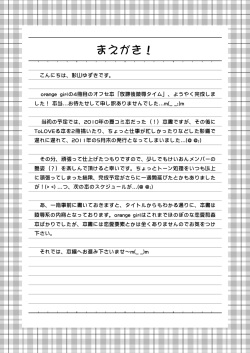 まえがき！
こんにちは、影山ゆずきです。
orange girlの4冊目のオフセ本『放課後雑寝タイム』、ようやく完成しま
した！ 本当…お待たせして申し訳ありませんでした…m(._.)m
当初の予定では、2010年の夏コミ本だった（！）本書ですが、その後に
ToLOVEる本を2冊描いたり、ちょっと仕事が忙しかったりなどした影響で
遅れに遅れて、2011年の5月末の発行となってしまいました…(@ @;)
その分、頑張って仕上げたつもりですので、少しでもけいおんメンバーの
（？）を楽しんで頂けると幸いです。ちょっとトーン処理をいつも以上
に頑張ってしまった結果、完成予定がさらに一週間延びたとかもありました
が！(> <) …つ、次の本のスケジュールが…(@ @;)
あ、一応事前に書いておきますと、タイトルからもわかる通りに、本書は
系の内容となっております。orange girlはこれまでほのぼのな恋愛百合
本ばかりでしたが、本書には恋愛要素とかは全くありませんのでお気をつけ
下さい。
それでは、本編へお進み下さいませ～m(._.)m